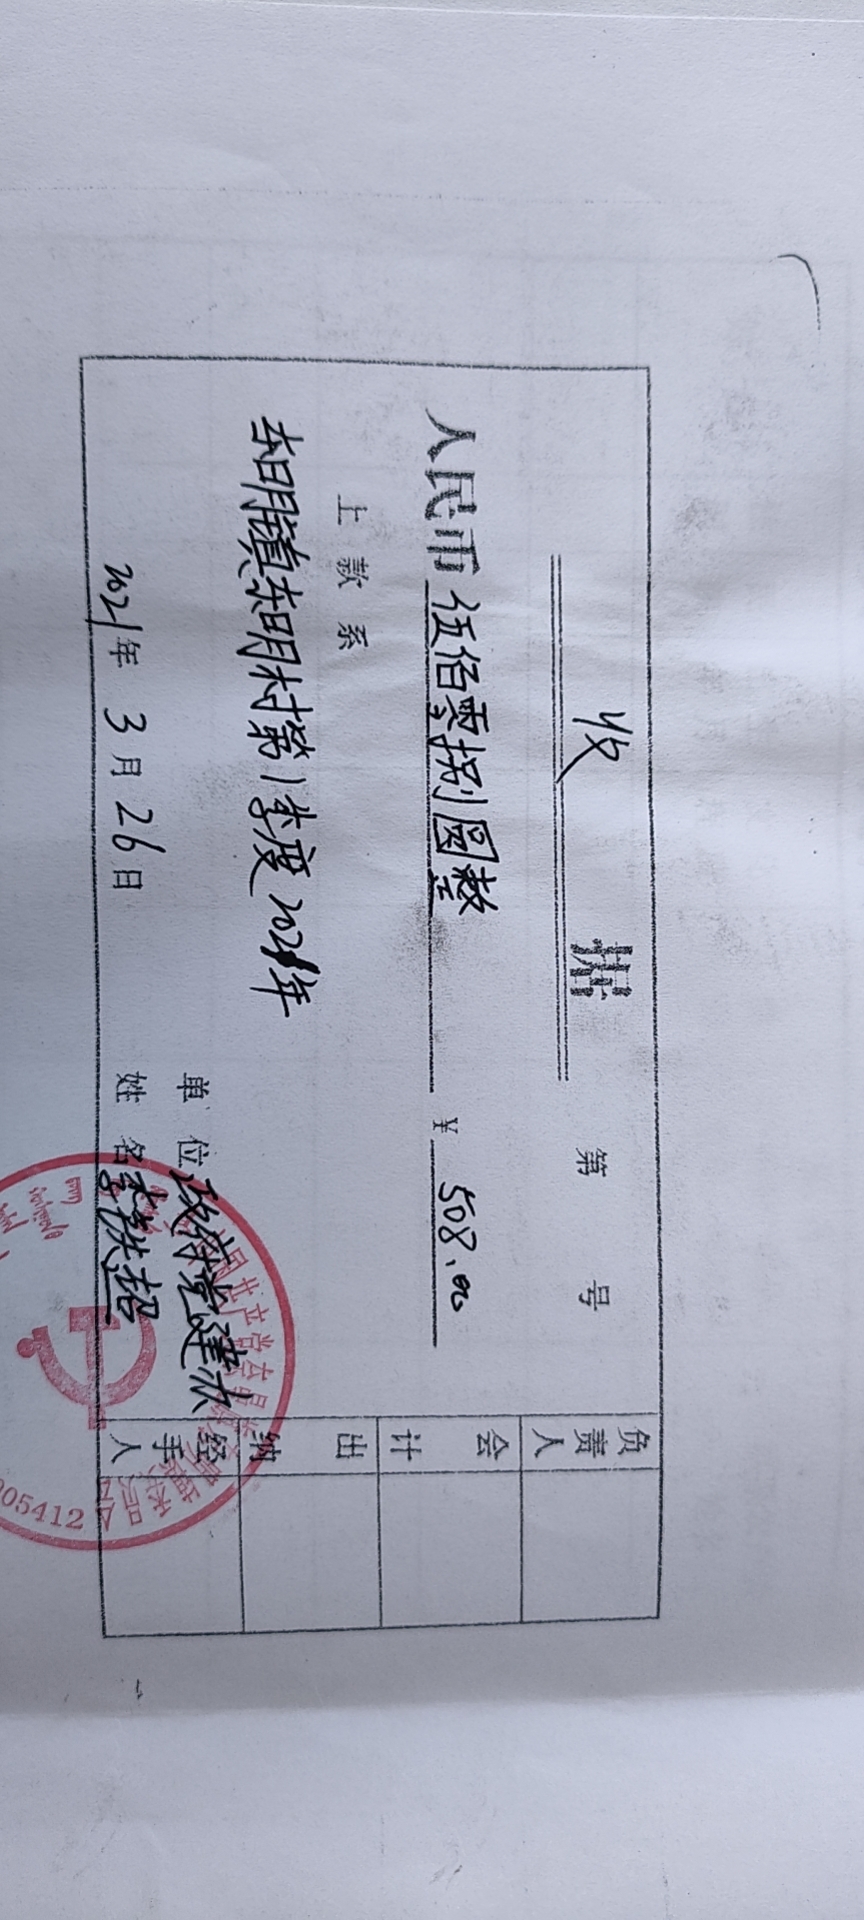 收 据 第 号
人民币 伍佰零捌圆整 ¥ 508.00
上款系
东明镇东明村第1季度2021年
单位 政府党建办
2021年 3月 26日 姓名 李铁超
负责人
会计
出纳
经手人
05412